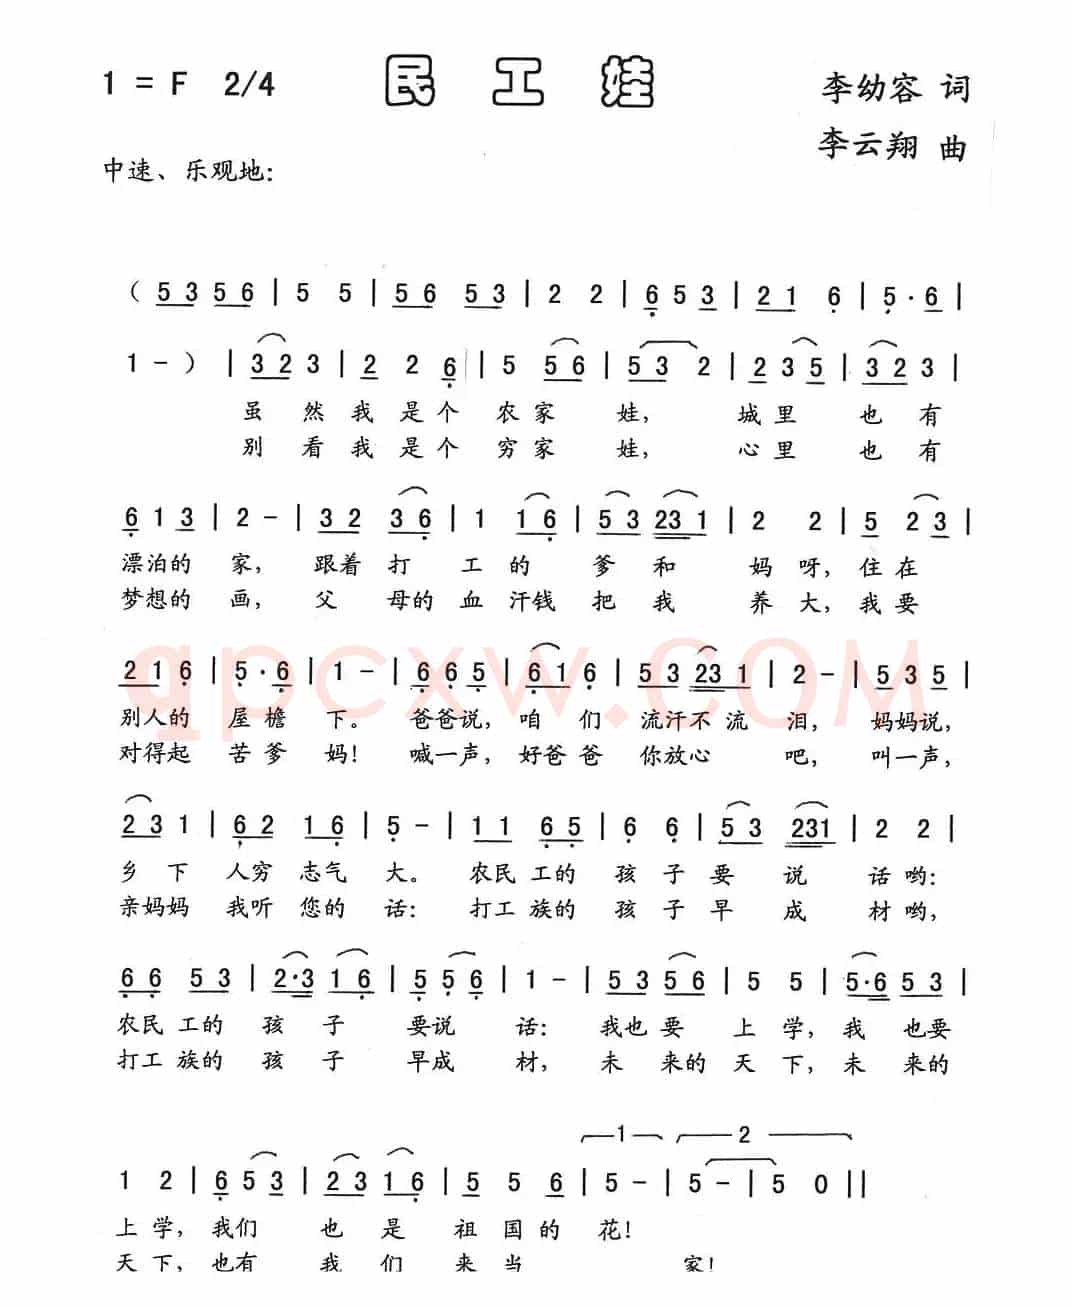 1 = F 2/4 民 工 娃 李幼容 词
李云翔 曲
中速、乐观地:
( 5 3 5 6 | 5 5 | 5 6 5 3 | 2 2 | 6 5 3 | 2 1 6 | 5 · 6 |
1 - ) | 3 2 3 | 2 2 6 | 5 5 6 | 5 3 2 | 2 3 5 | 3 2 3 |
虽 然 我 是 个 农 家 娃, 城 里 也 有
别 看 我 是 个 穷 家 娃, 心 里 也 有
6 1 3 | 2 - | 3 2 3 6 | 1 1 6 | 5 3 23 1 | 2 2 | 5 2 3 |
漂泊的 家, 跟着 打 工 的 爹 和 妈 呀, 住 在
梦想的 画, 父 母的 血 汗钱 把 我 养 大, 我 要
2 1 6 | 5 · 6 | 1 - | 6 6 5 | 6 1 6 | 5 3 23 1 | 2 - | 5 3 5 |
别人的 屋 檐 下。 爸爸说, 咱 们 流汗不 流 泪, 妈妈说,
对得起 苦 爹 妈! 喊一声, 好爸爸 你放心 吧, 叫一声,
qpcxw.COM
2 3 1 | 6 2 1 6 | 5 - | 1 1 6 5 | 6 6 | 5 3 231 | 2 2 |
乡 下 人穷 志气 大。 农民 工的 孩 子 要 说 话 哟:
亲妈妈 我听 您的 话: 打工 族的 孩 子 早 成 材 哟,
6 6 5 3 | 2·3 1 6 | 5 5 6 | 1 - | 5 3 5 6 | 5 5 | 5·6 5 3 |
农民 工的 孩 子 要说 话: 我也 要 上 学, 我 也要
打工 族的 孩 子 早成 材, 未 来的 天 下, 未 来的
1 2
1 2 | 6 5 3 | 2 3 1 6 | 5 5 6 | 5 - | 5 - | 5 0 ||
上 学, 我们 也 是 祖 国 的 花!
天 下, 也有 我 们 来 当 家!